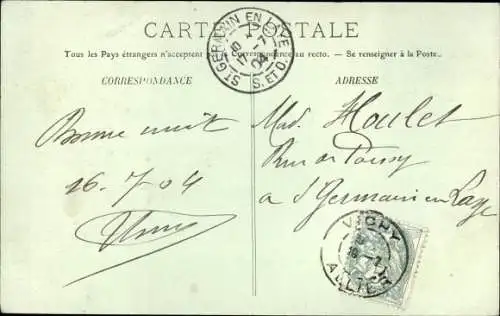 CARTE POSTALE
Tous les Pays étrangers n'acceptent pas la Correspondance au recto. — Se renseigner à la Poste.
ST GERMAIN EN LAYE
17 - 7
04
S. ET O.
CORRESPONDANCE
ADRESSE
Bonne nuit
16.7 04
Mad. Houlet
Rue de Poissy
a St Germain en Laye
VICHY
16 - 7
ALLIER